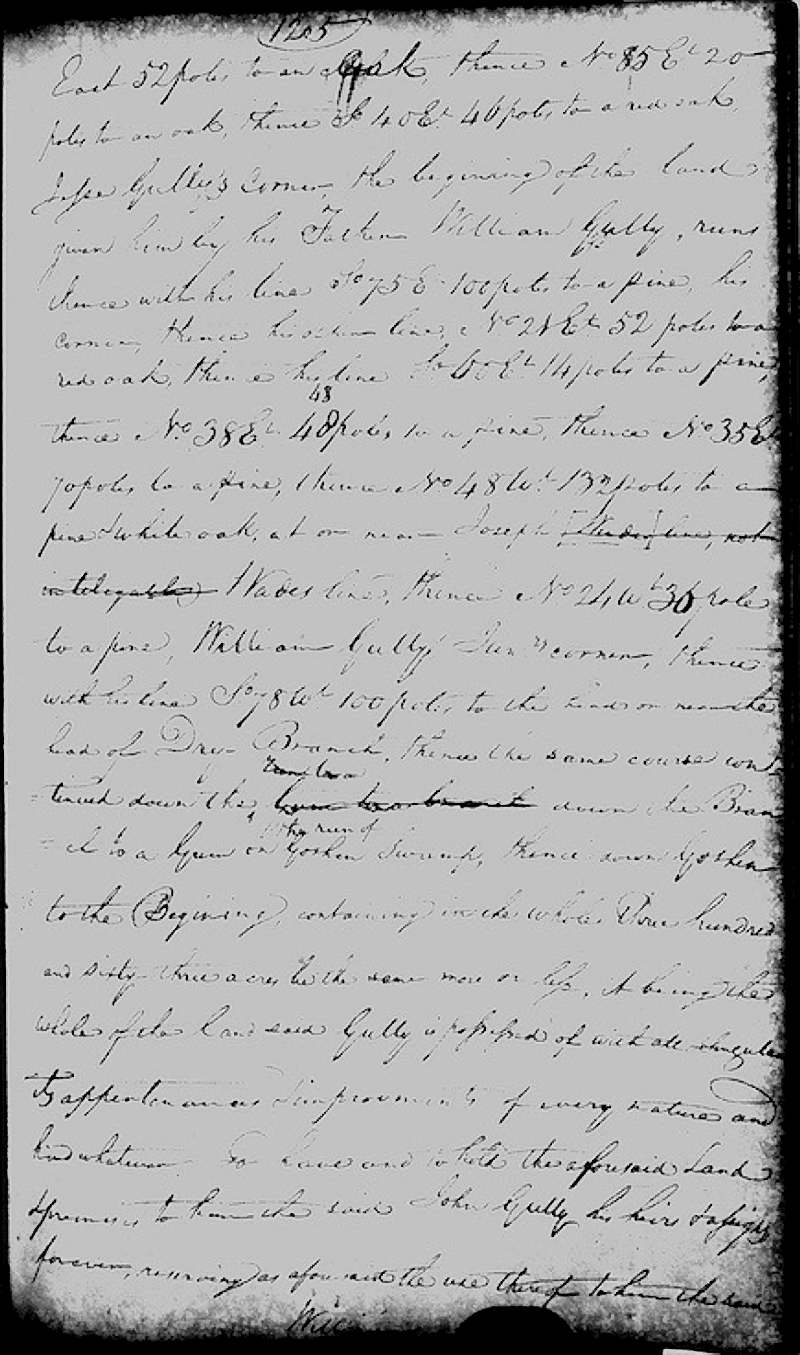 1205
East 52 poles to an Oak, thence No 85 Et 20
poles to an oak, thence So 40 Et 46 poles to a red oak,
Jesse Gully's Corner, the begining of the land
given him by his Father William Gully, runs
thence with his line So 75 E 100 poles to a pine, his
corner, thence his line, No 21 Et 52 poles to a
red oak, thence his line So Et 14 poles to a pine,
48
thence No 38 Et 48 poles to a pine, thence No 35 Et
70 poles to a pine, thence No 48 Wt 132 poles to a
pine & white oak, at or near Joseph line, not
intelegable) Wades line, thence No 24 Wt 36 pole
to a pine, William Gully Junr corner, thence
with his line So 78 Wt 100 poles to the head or near the
head of Dry Branch, thence the same course con
=tinued down the branch down the Bran
the run of
=ch to a Gum on Goshen Swamp, thence down Goshen
to the Begining, containing in the whole Three hundred
and sixty three acres be the same more or less, it being the
whole of the land said Gully is possessed of with all & singular
appertenances & improvments of every nature and
kind whatever To have and to hold the aforesaid Land
& premises to him the said John Gully his heirs & assigns
forever, reserving as aforesaid the use thereof to him the said